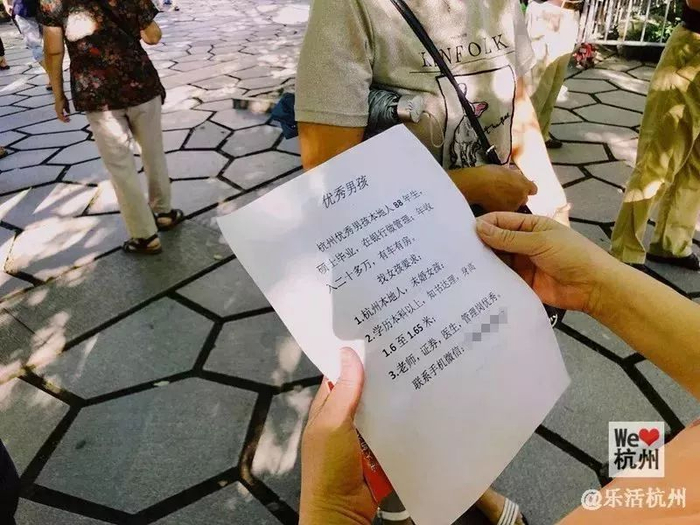 优秀男孩
杭州优秀男孩本地人88年生，
硕士毕业，在银行做管理，年收
入二十多万，有车有房，
找女孩要求：
1.杭州本地人，未婚女孩，
2.学历本科以上，知书达理，身高
1.6至1.65米；
3.老师，证券，医生，管理岗优秀，
联系手机微信：
INFOLK
We
杭州
@乐活杭州